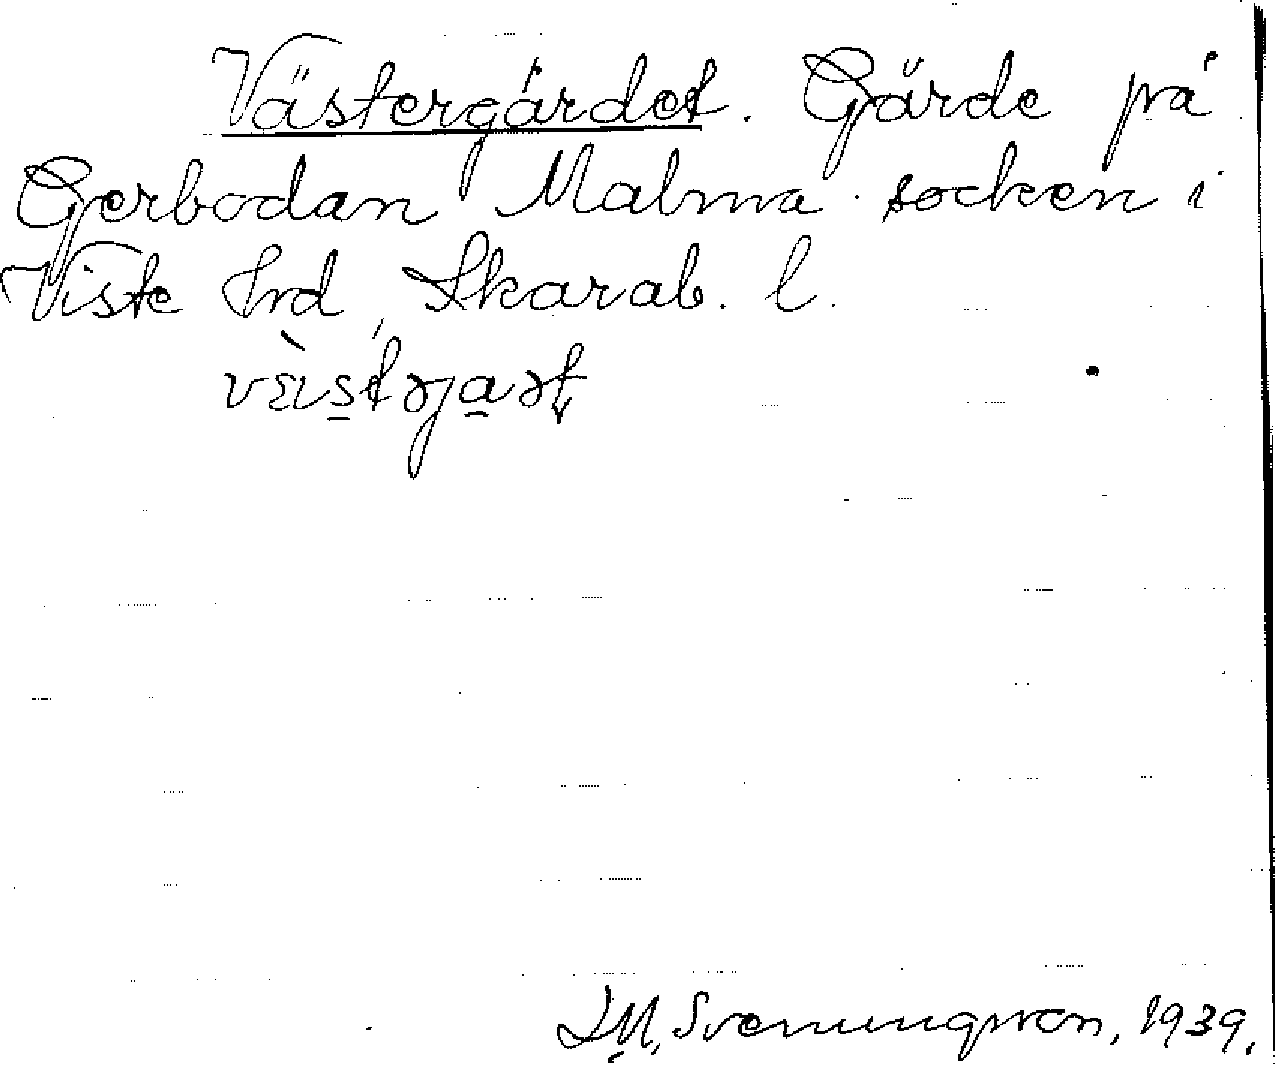 Västergärdet. Gärde på
Gerbodan Malma socken i
Viste hrd, Skarab. l.
J.M. Svenungsson, 1939.